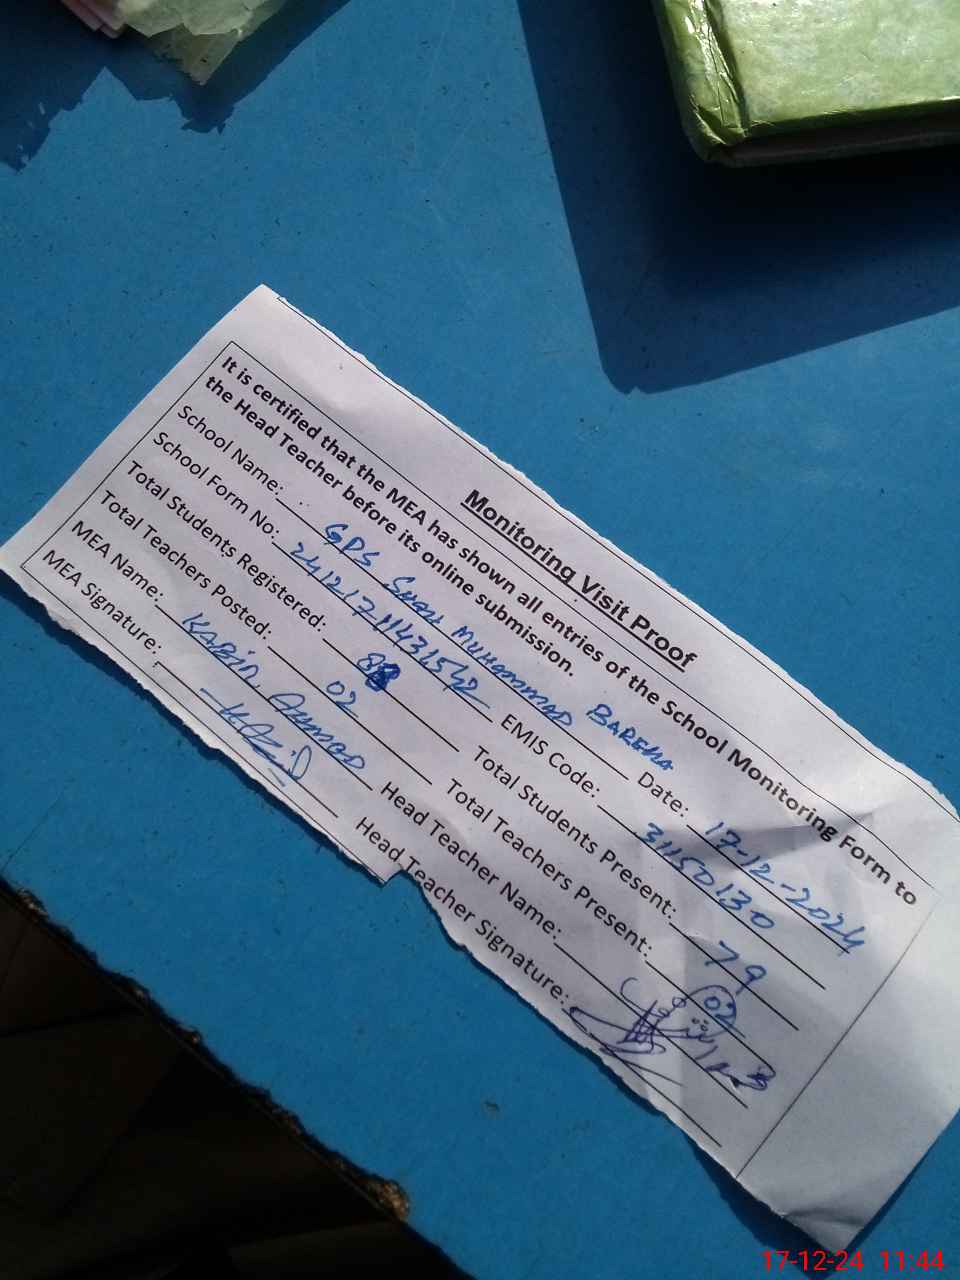 Monitoring Visit Proof
It is certified that the MEA has shown all entries of the School Monitoring Form to
the Head Teacher before its online submission.
School Name: GPS SHAH MUHAMMAD BAREHA Date: 17-12-2024
School Form No: EMIS Code: 31150130
Total Students Registered: Total Students Present: 79
Total Teachers Posted: 02 Total Teachers Present: 02
MEA Name: KABIR AHMAD Head Teacher Name:
MEA Signature: KABIR Head Teacher Signature:
17-12-24 11:44